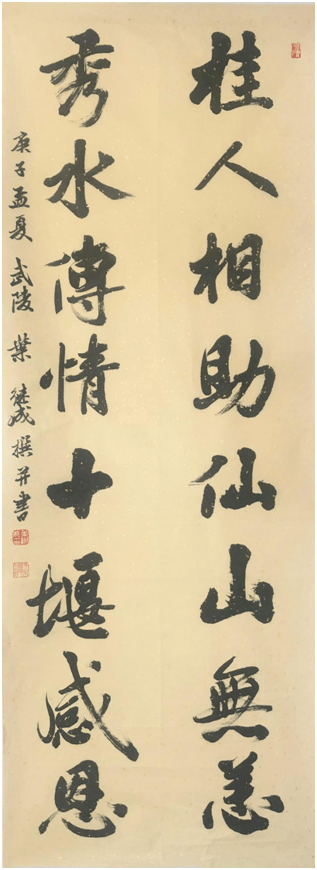 桂人相助仙山無恙
秀水傳情十堰感恩
庚子孟夏武陵葉繼成撰并書